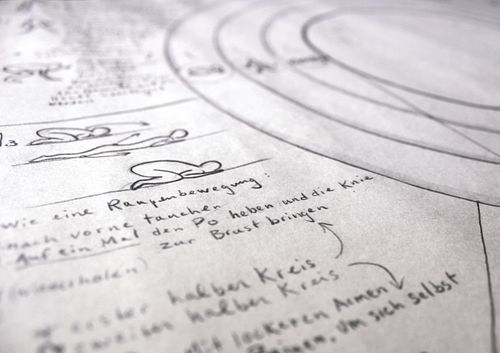 .3
wie eine Raupenbewegung:
nach vorne tauchen
Auf ein Mal den Po heben und die Knie
zur Brust bringen
(wiederholen)
erster halber Kreis
zweiter halber Kreis
Mit lockeren Armen
Beinen, um sich selbst